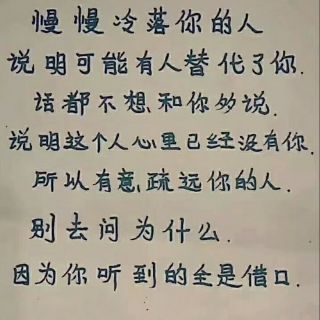 慢慢冷落你的人
说明可能有人替代了你.
话都不想和你多说.
说明这个人心里已经没有你.
所以有意疏远你的人.
别去问为什么.
因为你听到的全是借口.